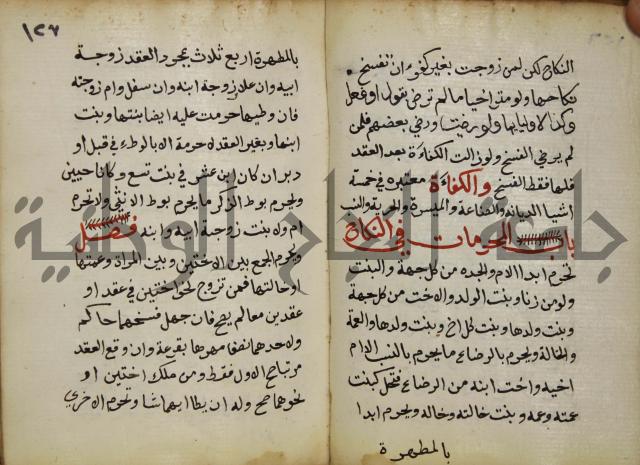 النكاح لكن لمن زوجت بغير كفوء ان تفسخ
نكاحها ولو متراخيا ما لم ترض بقول او فعل
وكذا لاوليائها ولو رضيت او رضي بعضهم فلمن
لم يرض الفسخ ولو زالت الكفاءة بعد العقد
فلها فقط الفسخ والكفاءة معتبرة في خمسة
اشيا الديانة والصناعة والميسرة والحرية والنسب
باب المحرمات في النكاح
تحرم ابدا الام والجده من كل جهة والبنت
ولو من زنا وبنت الولد والاخت من كل جهة
وبنت ولدها وبنت كل اخ وبنت ولدها والعمة
والخالة ويحرم بالرضاع ما يحرم بالنسب الا ام
اخيه واخت ابنه من الرضاع فتحل كبنت
عمته وعمه وبنت خالته وخاله ويحرم ابدا
بالمطهرة
١٢٧
بالمطهرة اربع ثلاث بمجرد العقد زوجة
ابيه وان علا وزوجة ابنه وان سفل وام زوجته
فان وطيها حرمت عليه ايضا بنتها وبنت
ابنها وبغير العقد لا حرمة الا بالوطء في قبل او
دبر ان كان ابن عشر في بنت تسع وكانا حيين
ويحرم بوطء الذكر ما يحرم بوطء الانثى ولا تحرم
ام ولا بنت زوجة ابيه وابنه فصل
ويحرم الجمع بين الاختين وبين المراة وعمتها
او خالتها فمن تزوج نحو اختين في عقد او
عقدين معا لم يصح فان جهل فسخهما حاكم
ولاحدهما نصف مهرها بقرعة وان وقع العقد
مرتبا صح الاول فقط ومن ملك اختين او
نحوهما صح وله ان يطا ايهما شا وتحرم الاخرى
جامعة الإمام الوطنية